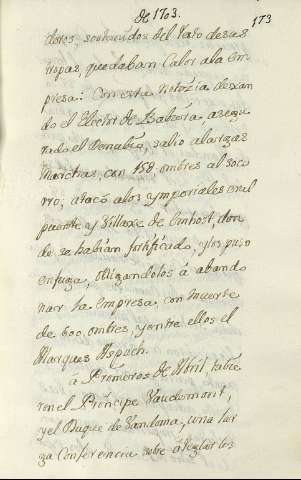 de 1703.
173
dores, sostenidos del resto de sus
tropas, quedaban Calor a la em
presa: Con esta victoria dexan
do el Elector de Babiera, asegu
rado el Danubio, salio a largas
Marchas, con 158 ombres al soco
rro, atacó a los ymperiales en el
puente y Villaxe de Emhost, don
de se habian fortificado, y los puso
en fuga, obligandolos á abando
nar la empresa, con muerte
de 600, ombres, y entre ellos el
Marques Aspach.
a Primeros de Abril, tubie
ron el Principe Vaudemont,
y el Duque de Vandoma, una lar
ga Conferencia sobre arreglar los